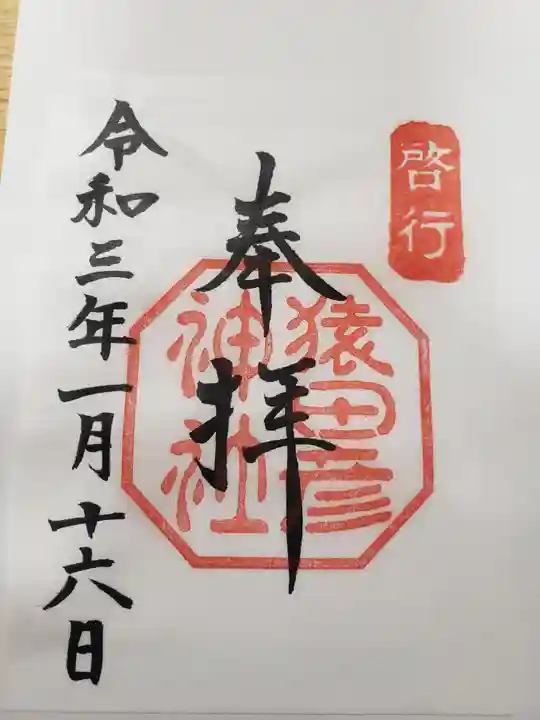 啓行
奉拝
猿田彦
神社
令和三年一月十六日